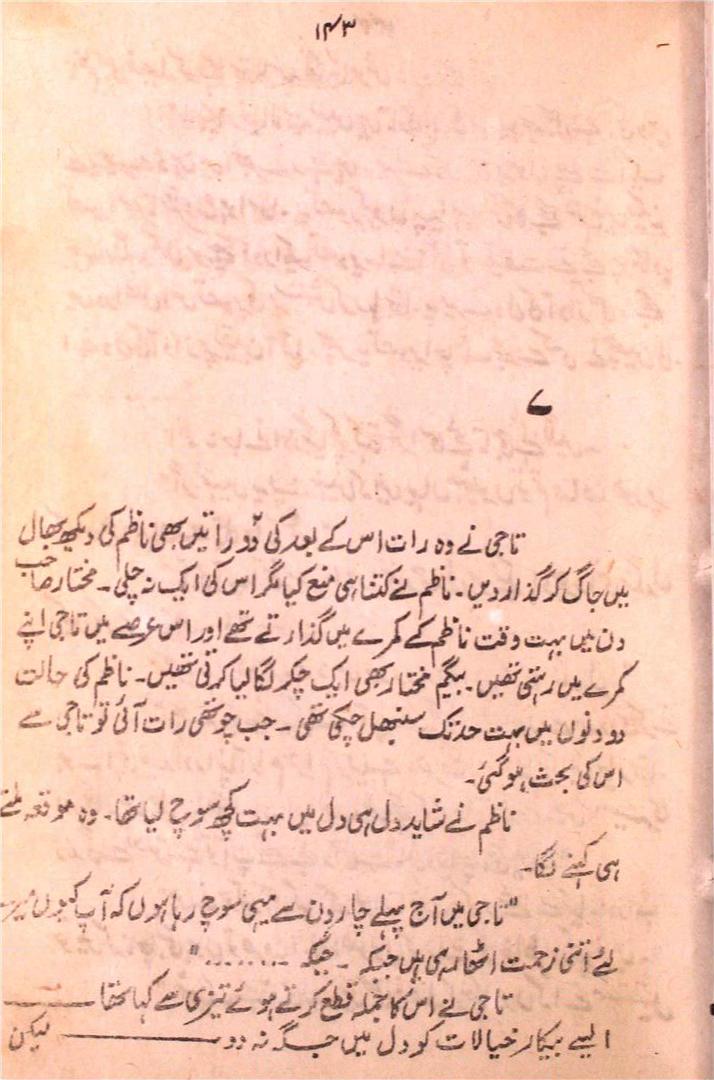 ۱۴۳
۷
تاجی نے وہ رات اس کے بعد کی دو راتیں بھی ناظم کی دیکھ بھال
میں جاگ کر گذار دیں۔ ناظم نے کتنا ہی منع کیا مگر اس کی ایک نہ چلی۔ مختار صاحب
دن میں بہت وقت ناظم کے کمرے میں گذارتے تھے اور اس عرصے میں تاجی اپنے
کمرے میں رہتی تھیں۔ بیگم مختار بھی ایک چکر لگا لیا کرتی تھیں۔ ناظم کی حالت
دو دنوں میں بہت حد تک سنبھل چکی تھی۔ جب چوتھی رات آئی تو تاجی سے
اس کی بحث ہو گئی۔
ناظم نے شاید دل ہی دل میں بہت کچھ سوچ لیا تھا۔ وہ موقعہ ملتے
ہی کہنے لگا۔
"تاجی میں آج پہلے چار دن سے یہی سوچ رہا ہوں کہ آپ کیوں میرے
لئے اتنی زحمت اٹھا رہی ہیں جبکہ ۔ جبکہ ۔........"
تاجی نے اس کا جملہ قطع کرتے ہوئے تیزی سے کہا تھا ــــــ
ایسے بیکار خیالات کو دل میں جگہ نہ دو ــــــــــــ لیکن